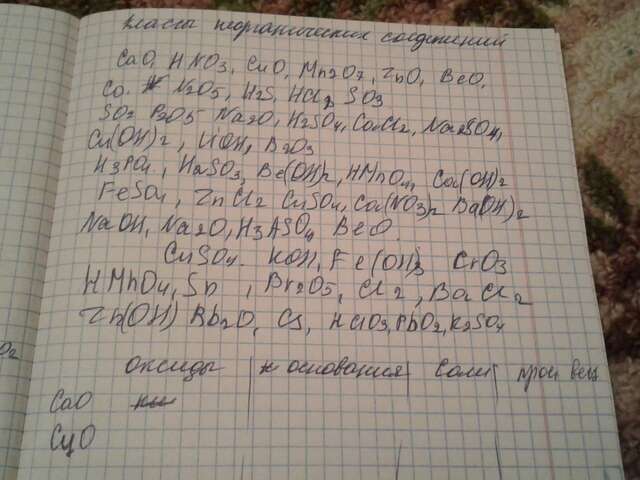 классы неорганических соединений
CaO, HNO3, CuO, Mn2O7, ZnO, BeO,
Co, N2O5, H2S, HCl, SO3
SO2 P2O5 Na2O, H2SO4, CaCl2, Na2SO4,
Cu(OH)2, LiOH, B2O3
H3PO4, H2SO3, Be(OH)2, HMnO4, Ca(OH)2
FeSO4, ZnCl2 CuSO4, Ca(NO3)2 Ba(OH)2
NaOH, Na2O, H3ASO4 BeO.
CuSO4. KOH, Fe(OH)3 CrO3
HMnO4, Sn, Br2O5, Cl2, BaCl2
Zn(OH) Rb2O, Cs, HClO3, PbO2, K2SO4
O2
оксиды основания Соли прои вещ
CaO
CuO